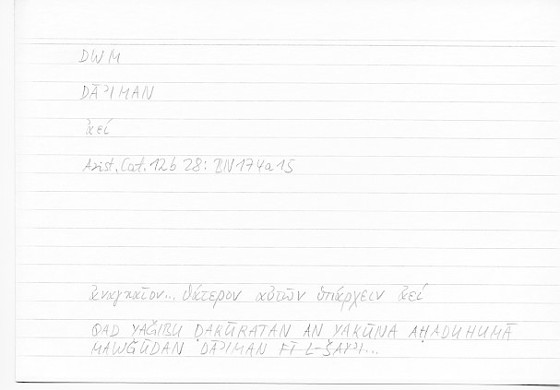 DWM
DĀʾIMAN
ἀεί
Arist. Cat. 12b 28: IN 174a 15
ἀναγκαῖον... θάτερον αὐτῶν ὑπάρχειν ἀεί
QAD YAǦIBU ḌARŪRATAN AN YAKŪNA AḤADUHUMĀ
MAWǦŪDAN DĀʾIMAN FĪ L-ŠAYʾI...